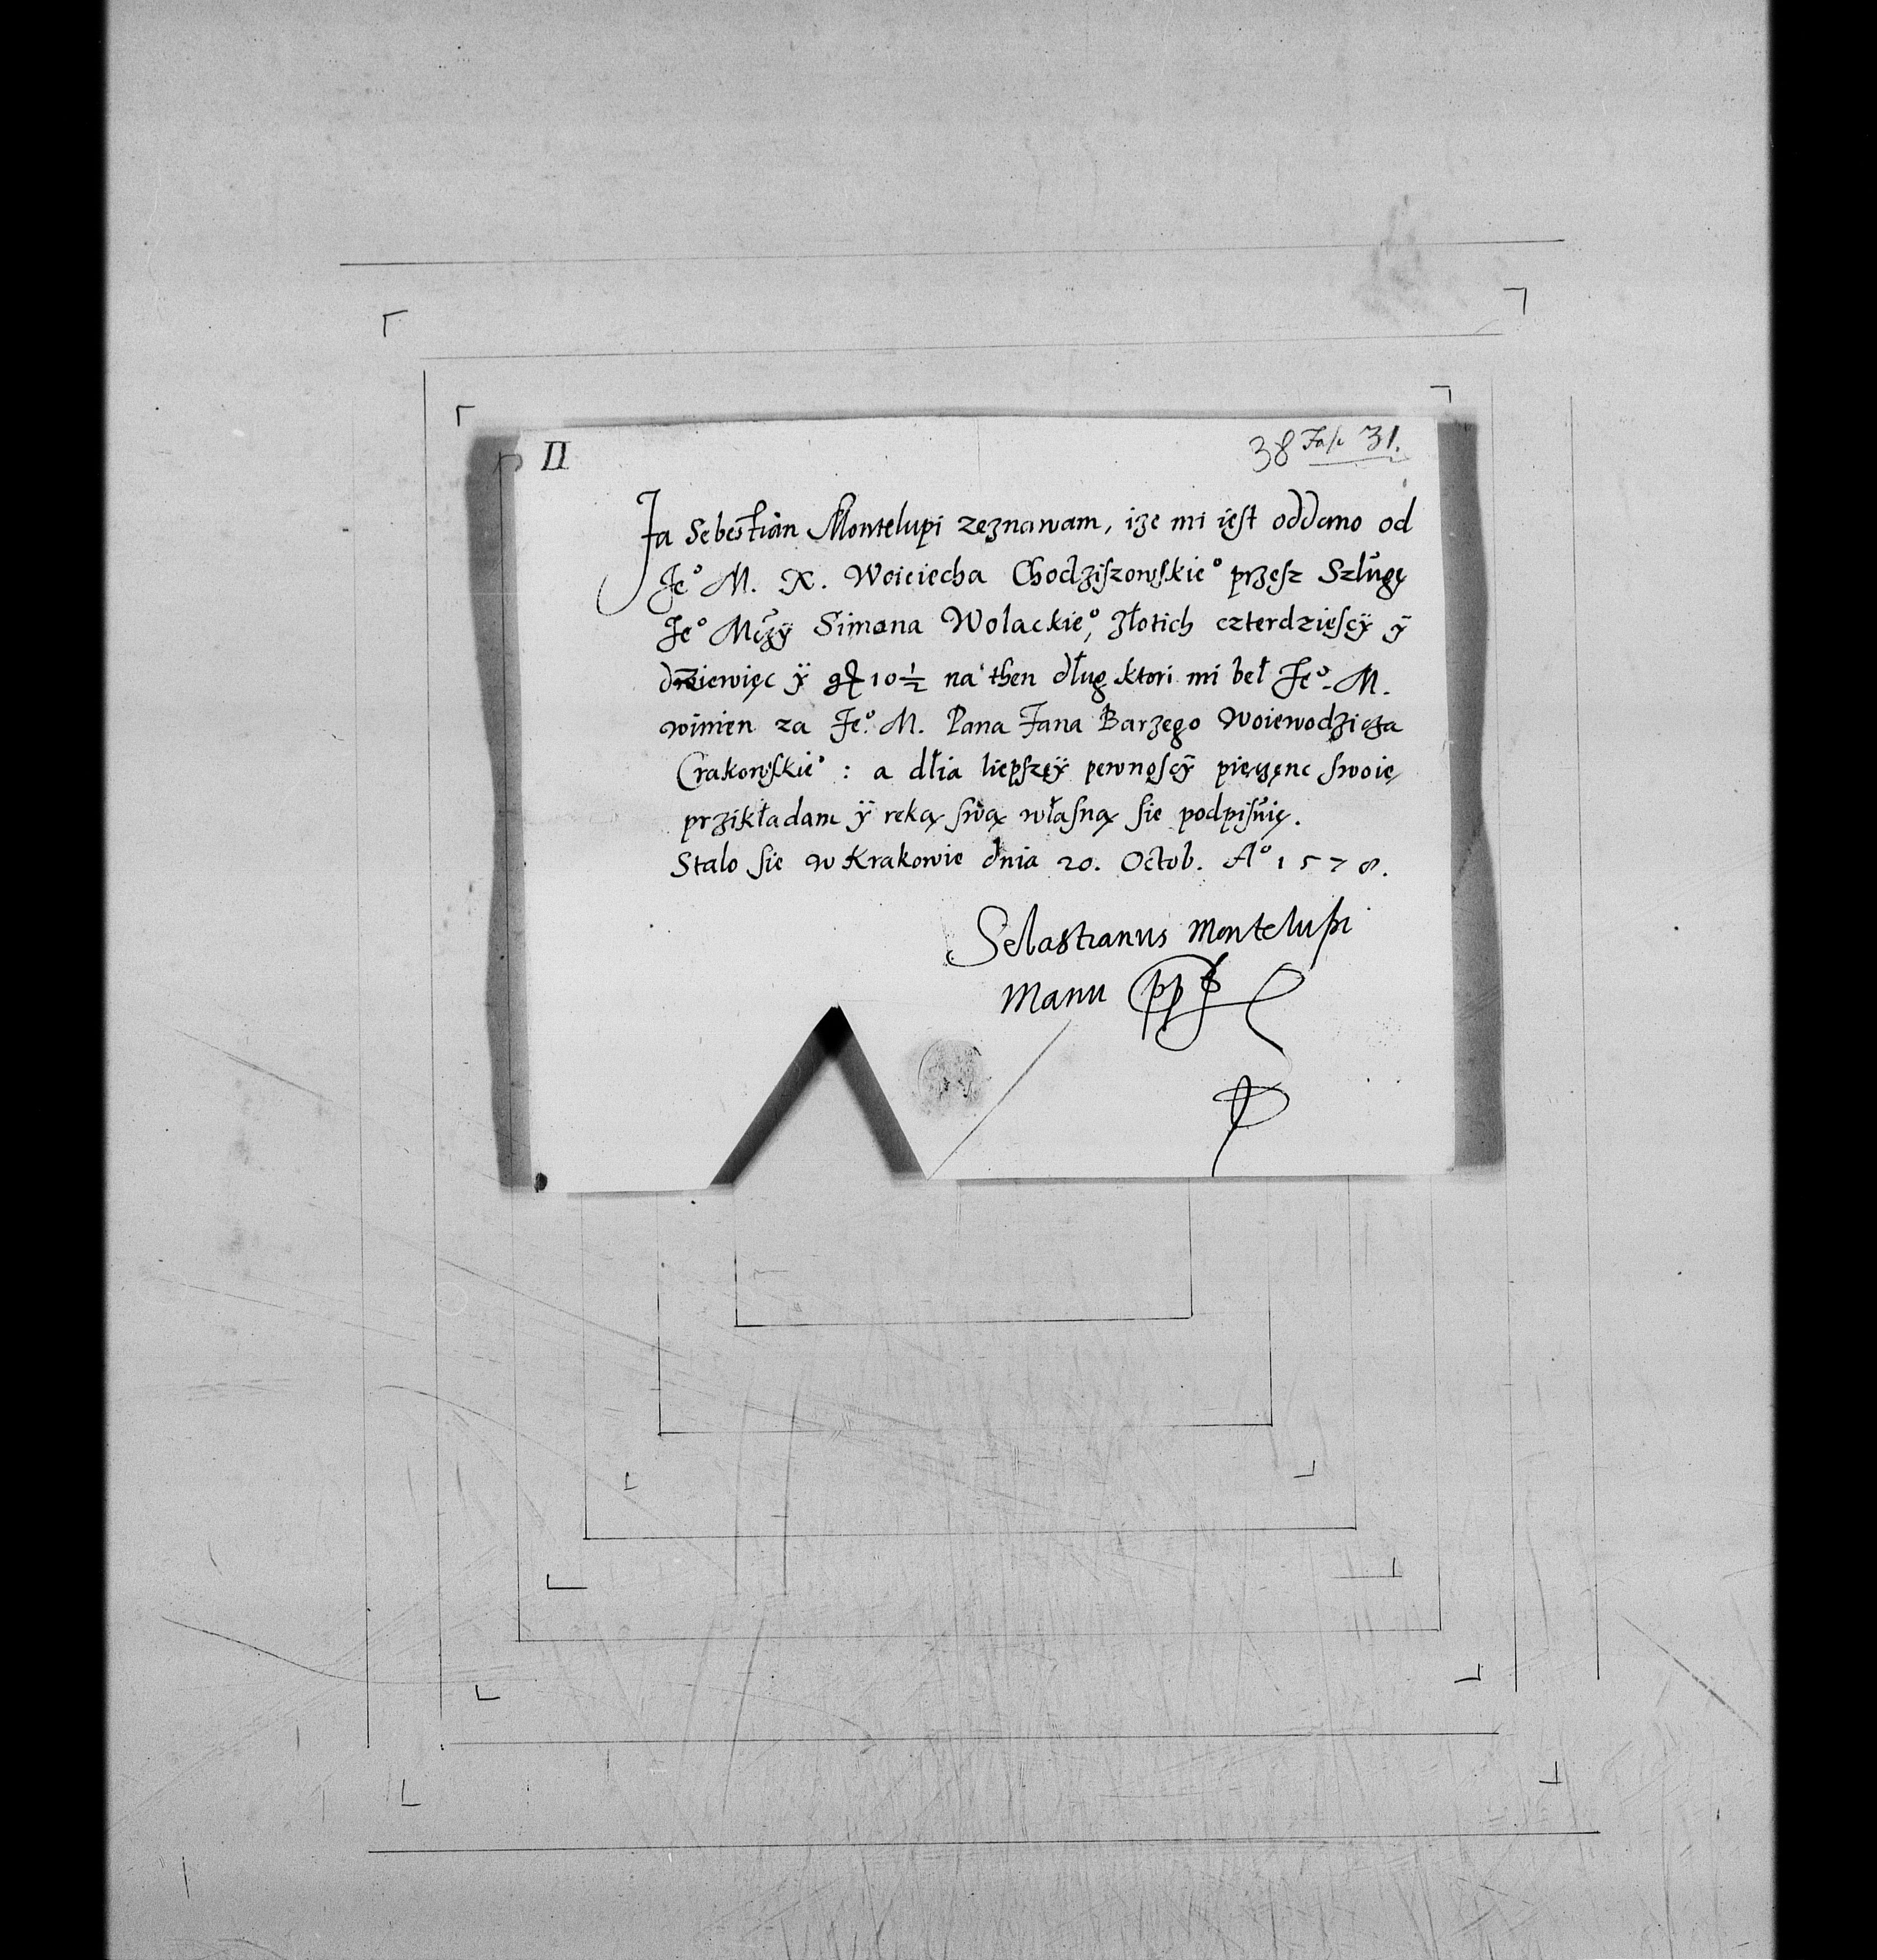 II
38 Fasc 31.
Ja Sebestian Montelupi zeznawam, ize mi iest oddano od
Je° M. X. Woiciecha Chodziszowskie° przesz Szlugę
Je° Mczÿ Simona Wolackie°, złotich czterdziescÿ ÿ
dziewięc ÿ gr 10½ na then dług ktori mi beł Je°. M.
winien za Je°. M. Pana Jana Barzego Woiewodzicza
Crakowskie° : a dlia liepszeÿ pewnoscÿ pieczęnc swoię
przikładam ÿ reką swą własną sie podpisuię.
Stalo sie w Krakowie dnia 20. Octob. A° 1578.
Sebastianus Montelupi
Manu pp